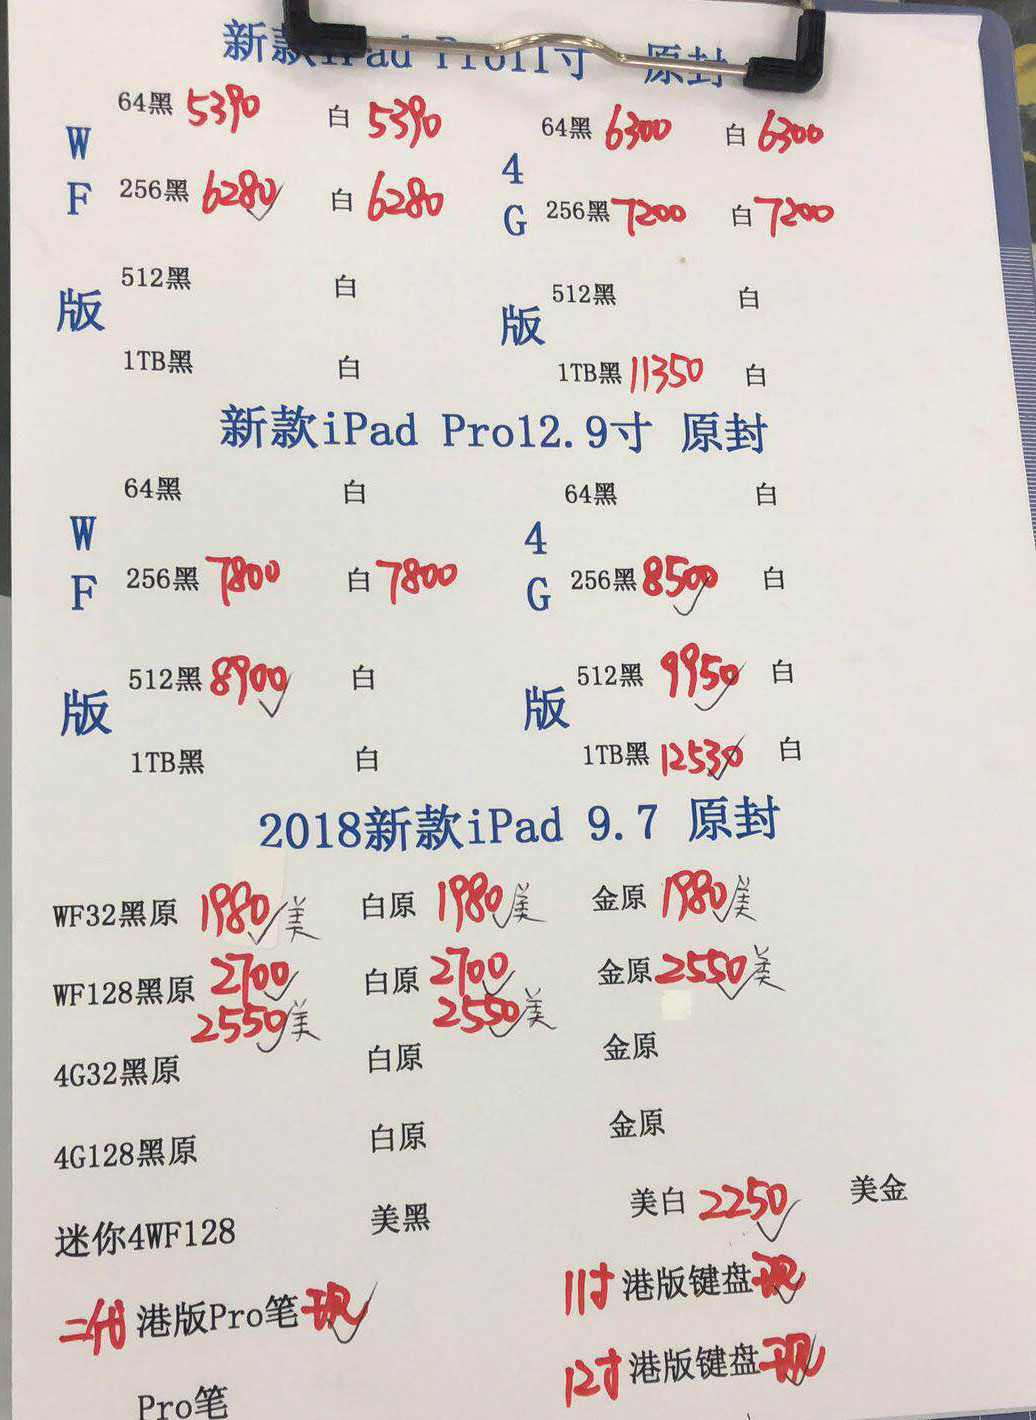 新款iPad Pro11寸 原封
64黑 5390 白 5390 64黑 6300 白 6300
WF版 4G版
256黑 6280 白 6280 256黑 7200 白 7200
512黑 白 512黑 白
1TB黑 白 1TB黑 11350 白
新款iPad Pro12.9寸 原封
64黑 白 64黑 白
WF版 4G版
256黑 7800 白 7800 256黑 8500 白
512黑 8900 白 512黑 9950 白
1TB黑 白 1TB黑 12530 白
2018新款iPad 9.7 原封
WF32黑原 1980 美 白原 1980 美 金原 1980 美
WF128黑原 2700 白原 2700 金原 2550 美
2550 美 2550 美
4G32黑原 白原 金原
4G128黑原 白原 金原
迷你4WF128 美黑 美白 2250 美金
二代 港版Pro笔 现 11寸 港版键盘 现
12寸 港版键盘 现
Pro笔